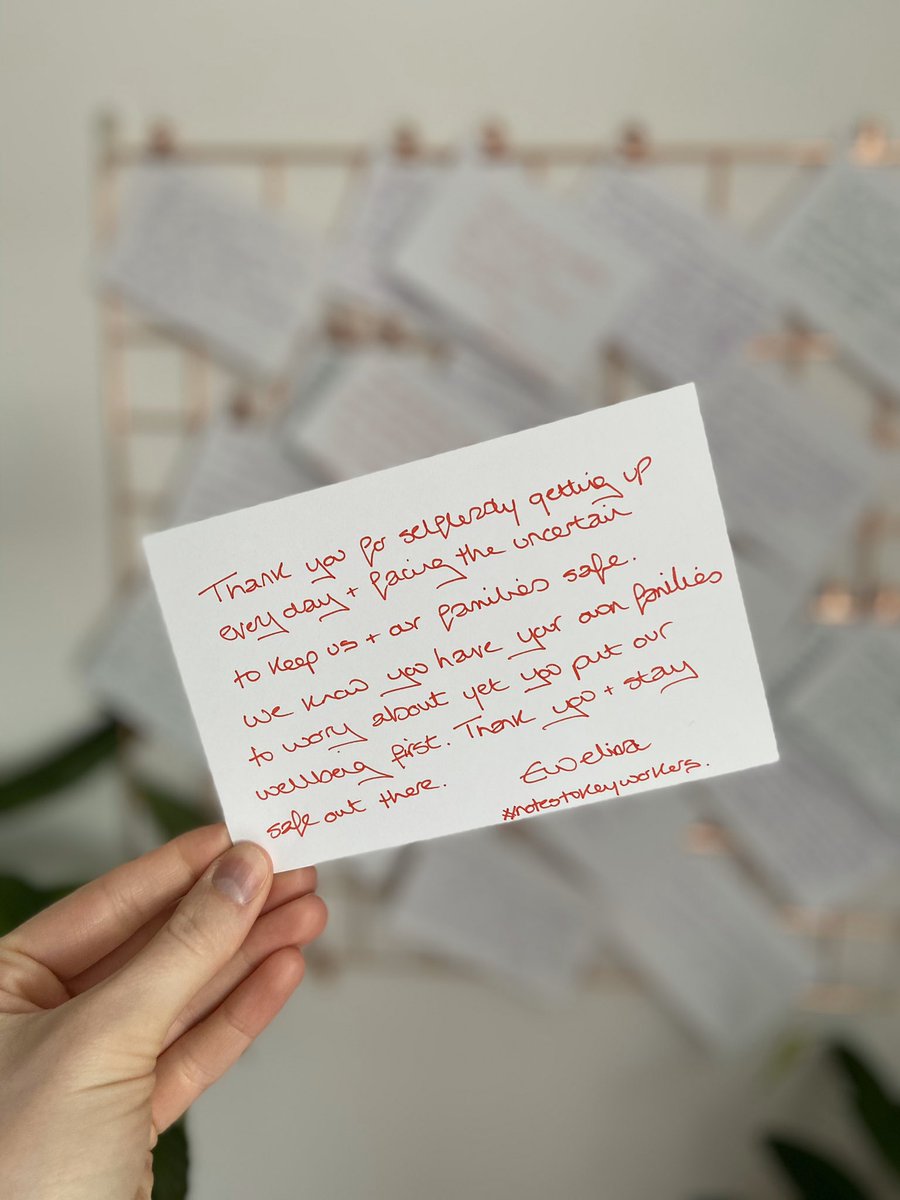 Thank you for selflessly getting up
every day + facing the uncertain
to keep us + our families safe.
We know you have your own families
to worry about yet you put our
wellbeing first. Thank you + stay
safe out there.
Ewelina
#notestokeyworkers.